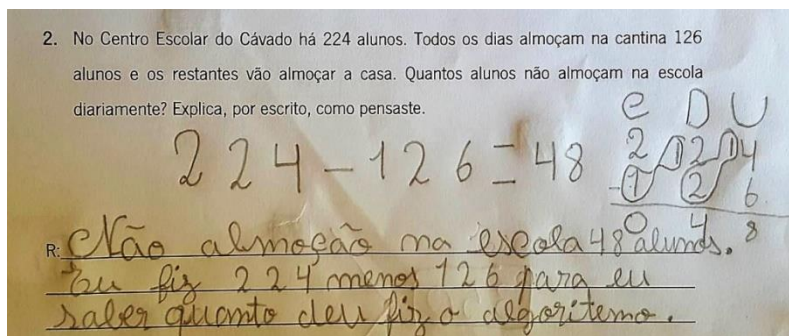 2. No Centro Escolar do Cávado há 224 alunos. Todos os dias almoçam na cantina 126
alunos e os restantes vão almoçar a casa. Quantos alunos não almoçam na escola
diariamente? Explica, por escrito, como pensaste.
C D U
224-126=48
2 12 14
-1 2 6
0 4 8
R: Não almoção na escola 48 alunos.
Eu fiz 224 menos 126 para eu
saber quanto deu fiz o algoritemo.